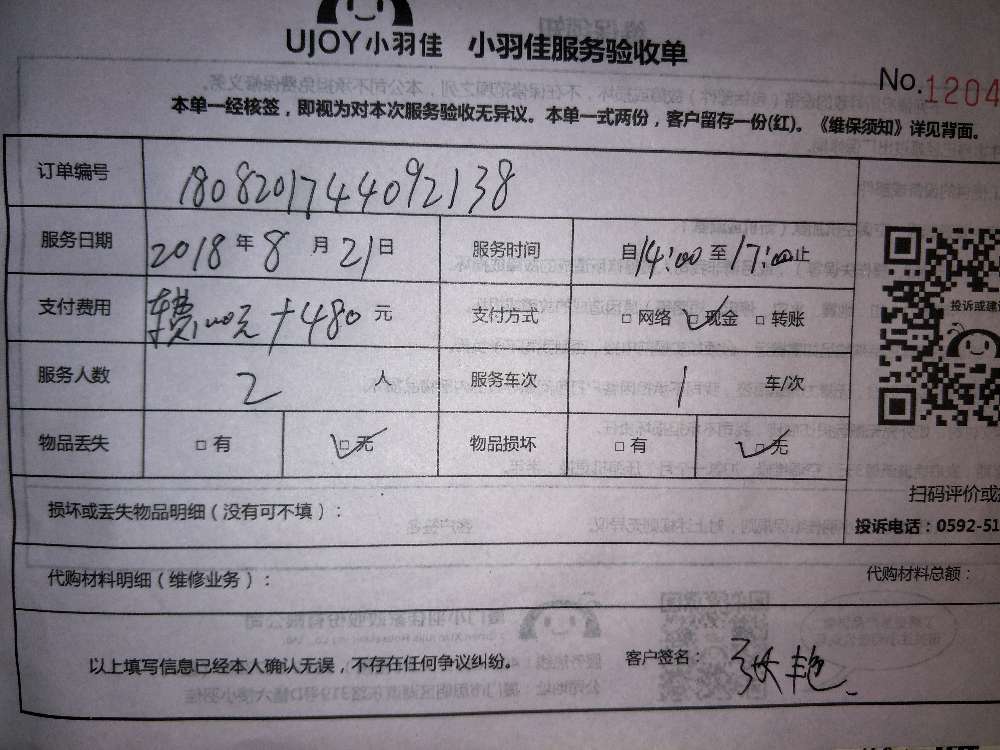 UJOY小羽佳 小羽佳服务验收单
No.1204
本单一经核签，即视为对本次服务验收无异议。本单一式两份，客户留存一份(红)。《维保须知》详见背面。
订单编号 1808201744092138
服务日期 2018年8月21日 服务时间 自14:00至17:00止
支付费用 元+480元 支付方式 □网络 □现金 □转账
服务人数 2人 服务车次 1车/次
物品丢失 □有 □无 物品损坏 □有 □无
投诉或建
扫码评价或
损坏或丢失物品明细（没有可不填）：
投诉电话：0592-51
代购材料明细（维修业务）： 代购材料总额：
以上填写信息已经本人确认无误，不存在任何争议纠纷。 客户签名：张艳